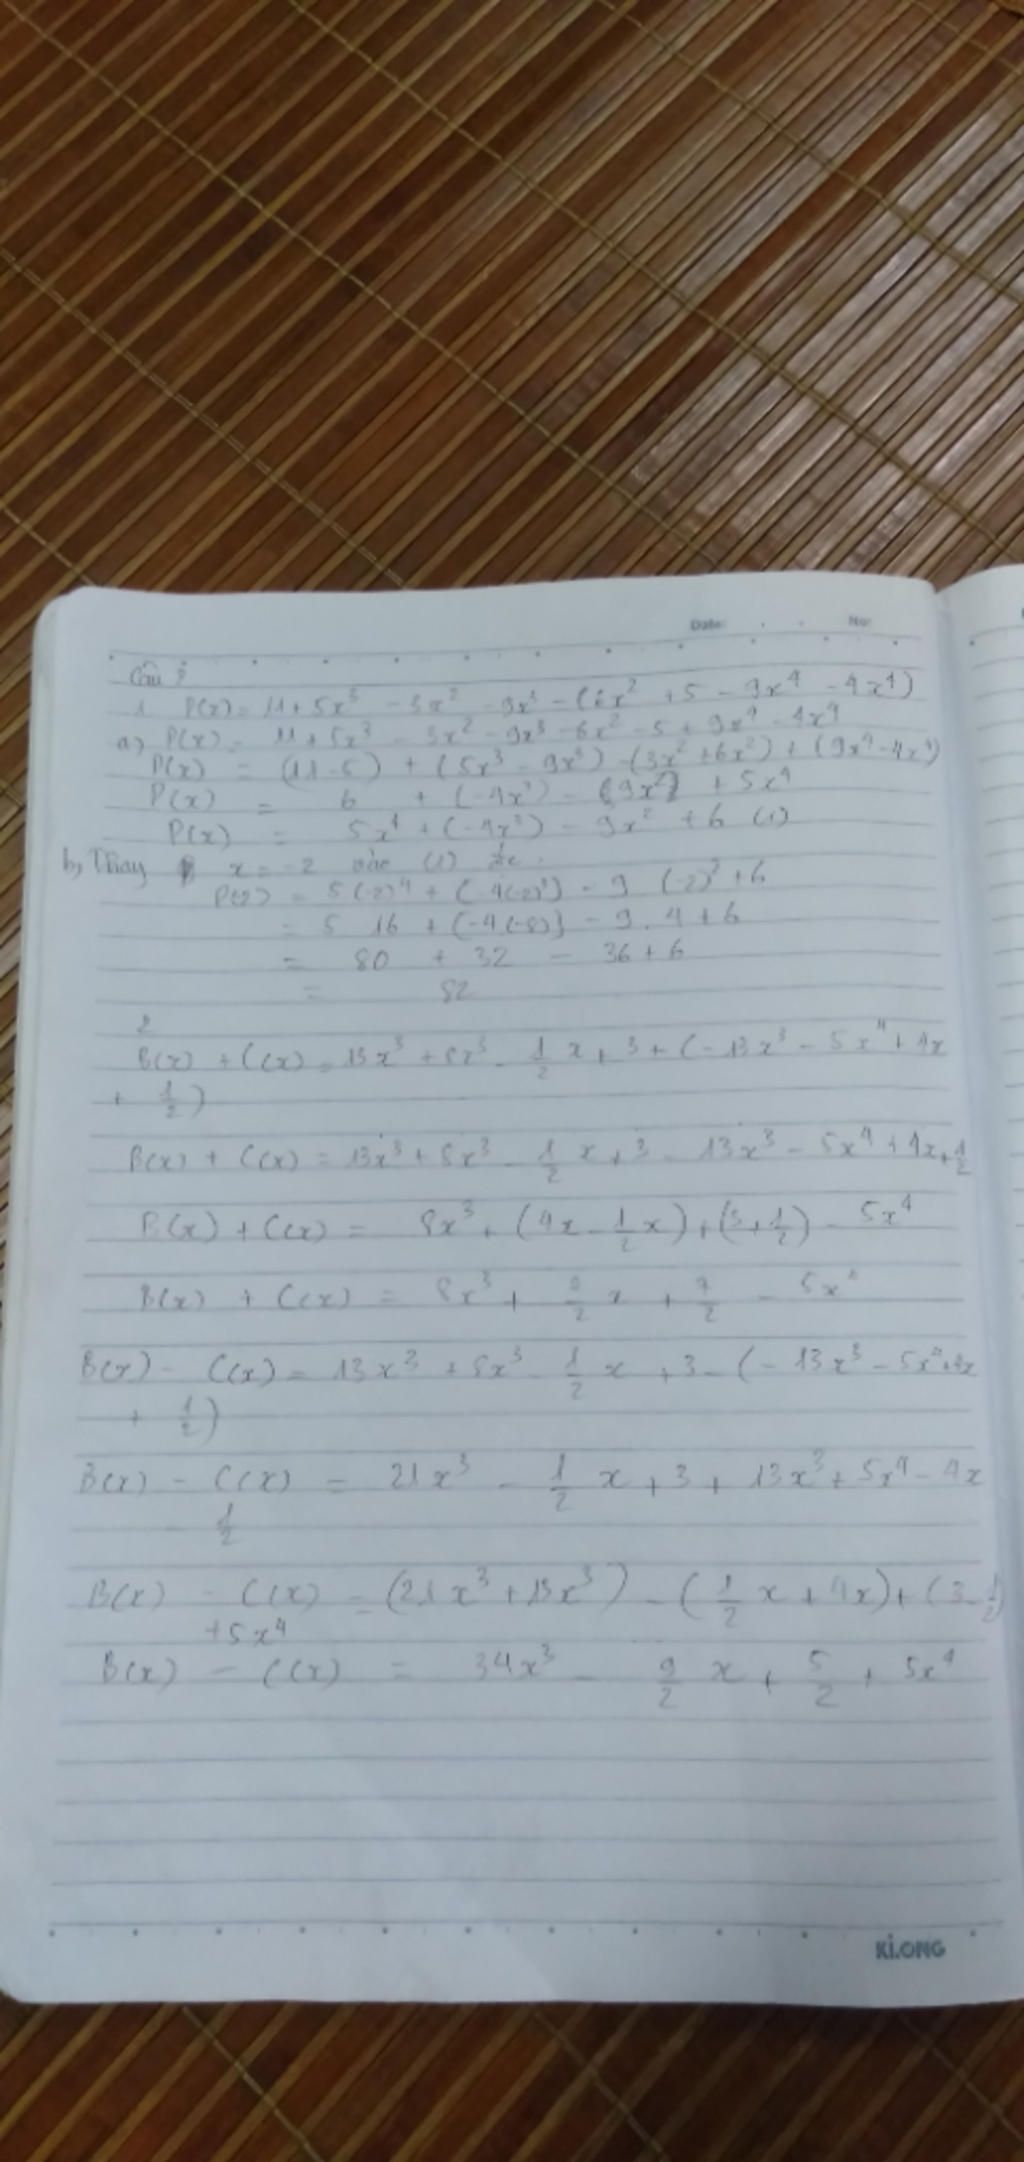 Date: No:
Câu 2
1 P(x) = 11 + 5x³ - 3x² - 9x³ - (6x² + 5 - 9x⁴ - 4x⁴)
a) P(x) = 11 + 5x³ - 3x² - 9x³ - 6x² - 5 + 9x⁴ - 4x⁴
P(x) = (11 - 5) + (5x³ - 9x³) - (3x² + 6x²) + (9x⁴ - 4x⁴)
P(x) = 6 + (-4x³) - (9x²) + 5x⁴
P(x) = 5x⁴ + (-4x³) - 9x² + 6 (1)
b, Thay x = -2 vào (1)
P(-2) = 5(-2)⁴ + (-4(-2)³) - 9 (-2)² + 6
= 5 16 + (-4(-8)) - 9.4 + 6
= 80 + 32 - 36 + 6
= 82
2
B(x) + C(x) = 13x³ + 8x³ - 1/2 x + 3 + (-13x³ - 5x⁴ + 4x
+ 1/2)
B(x) + C(x) = 13x³ + 8x³ - 1/2 x + 3 - 13x³ - 5x⁴ + 4x + 1/2
B(x) + C(x) = 8x³ + (4x - 1/2 x) + (3 + 1/2) - 5x⁴
B(x) + C(x) = 8x³ + x + 7/2 - 5x⁴
B(x) - C(x) = 13x³ + 8x³ - 1/2 x + 3 - (-13x³ - 5x⁴ + 4x
+ 1/2)
B(x) - C(x) = 21x³ - 1/2 x + 3 + 13x³ + 5x⁴ - 4x
- 1/2
B(x) - C(x) = (21x³ + 13x³) - (1/2 x + 4x) + (3 - 1/2)
+ 5x⁴
B(x) - C(x) = 34x³ - 9/2 x + 5/2 + 5x⁴
KLONG